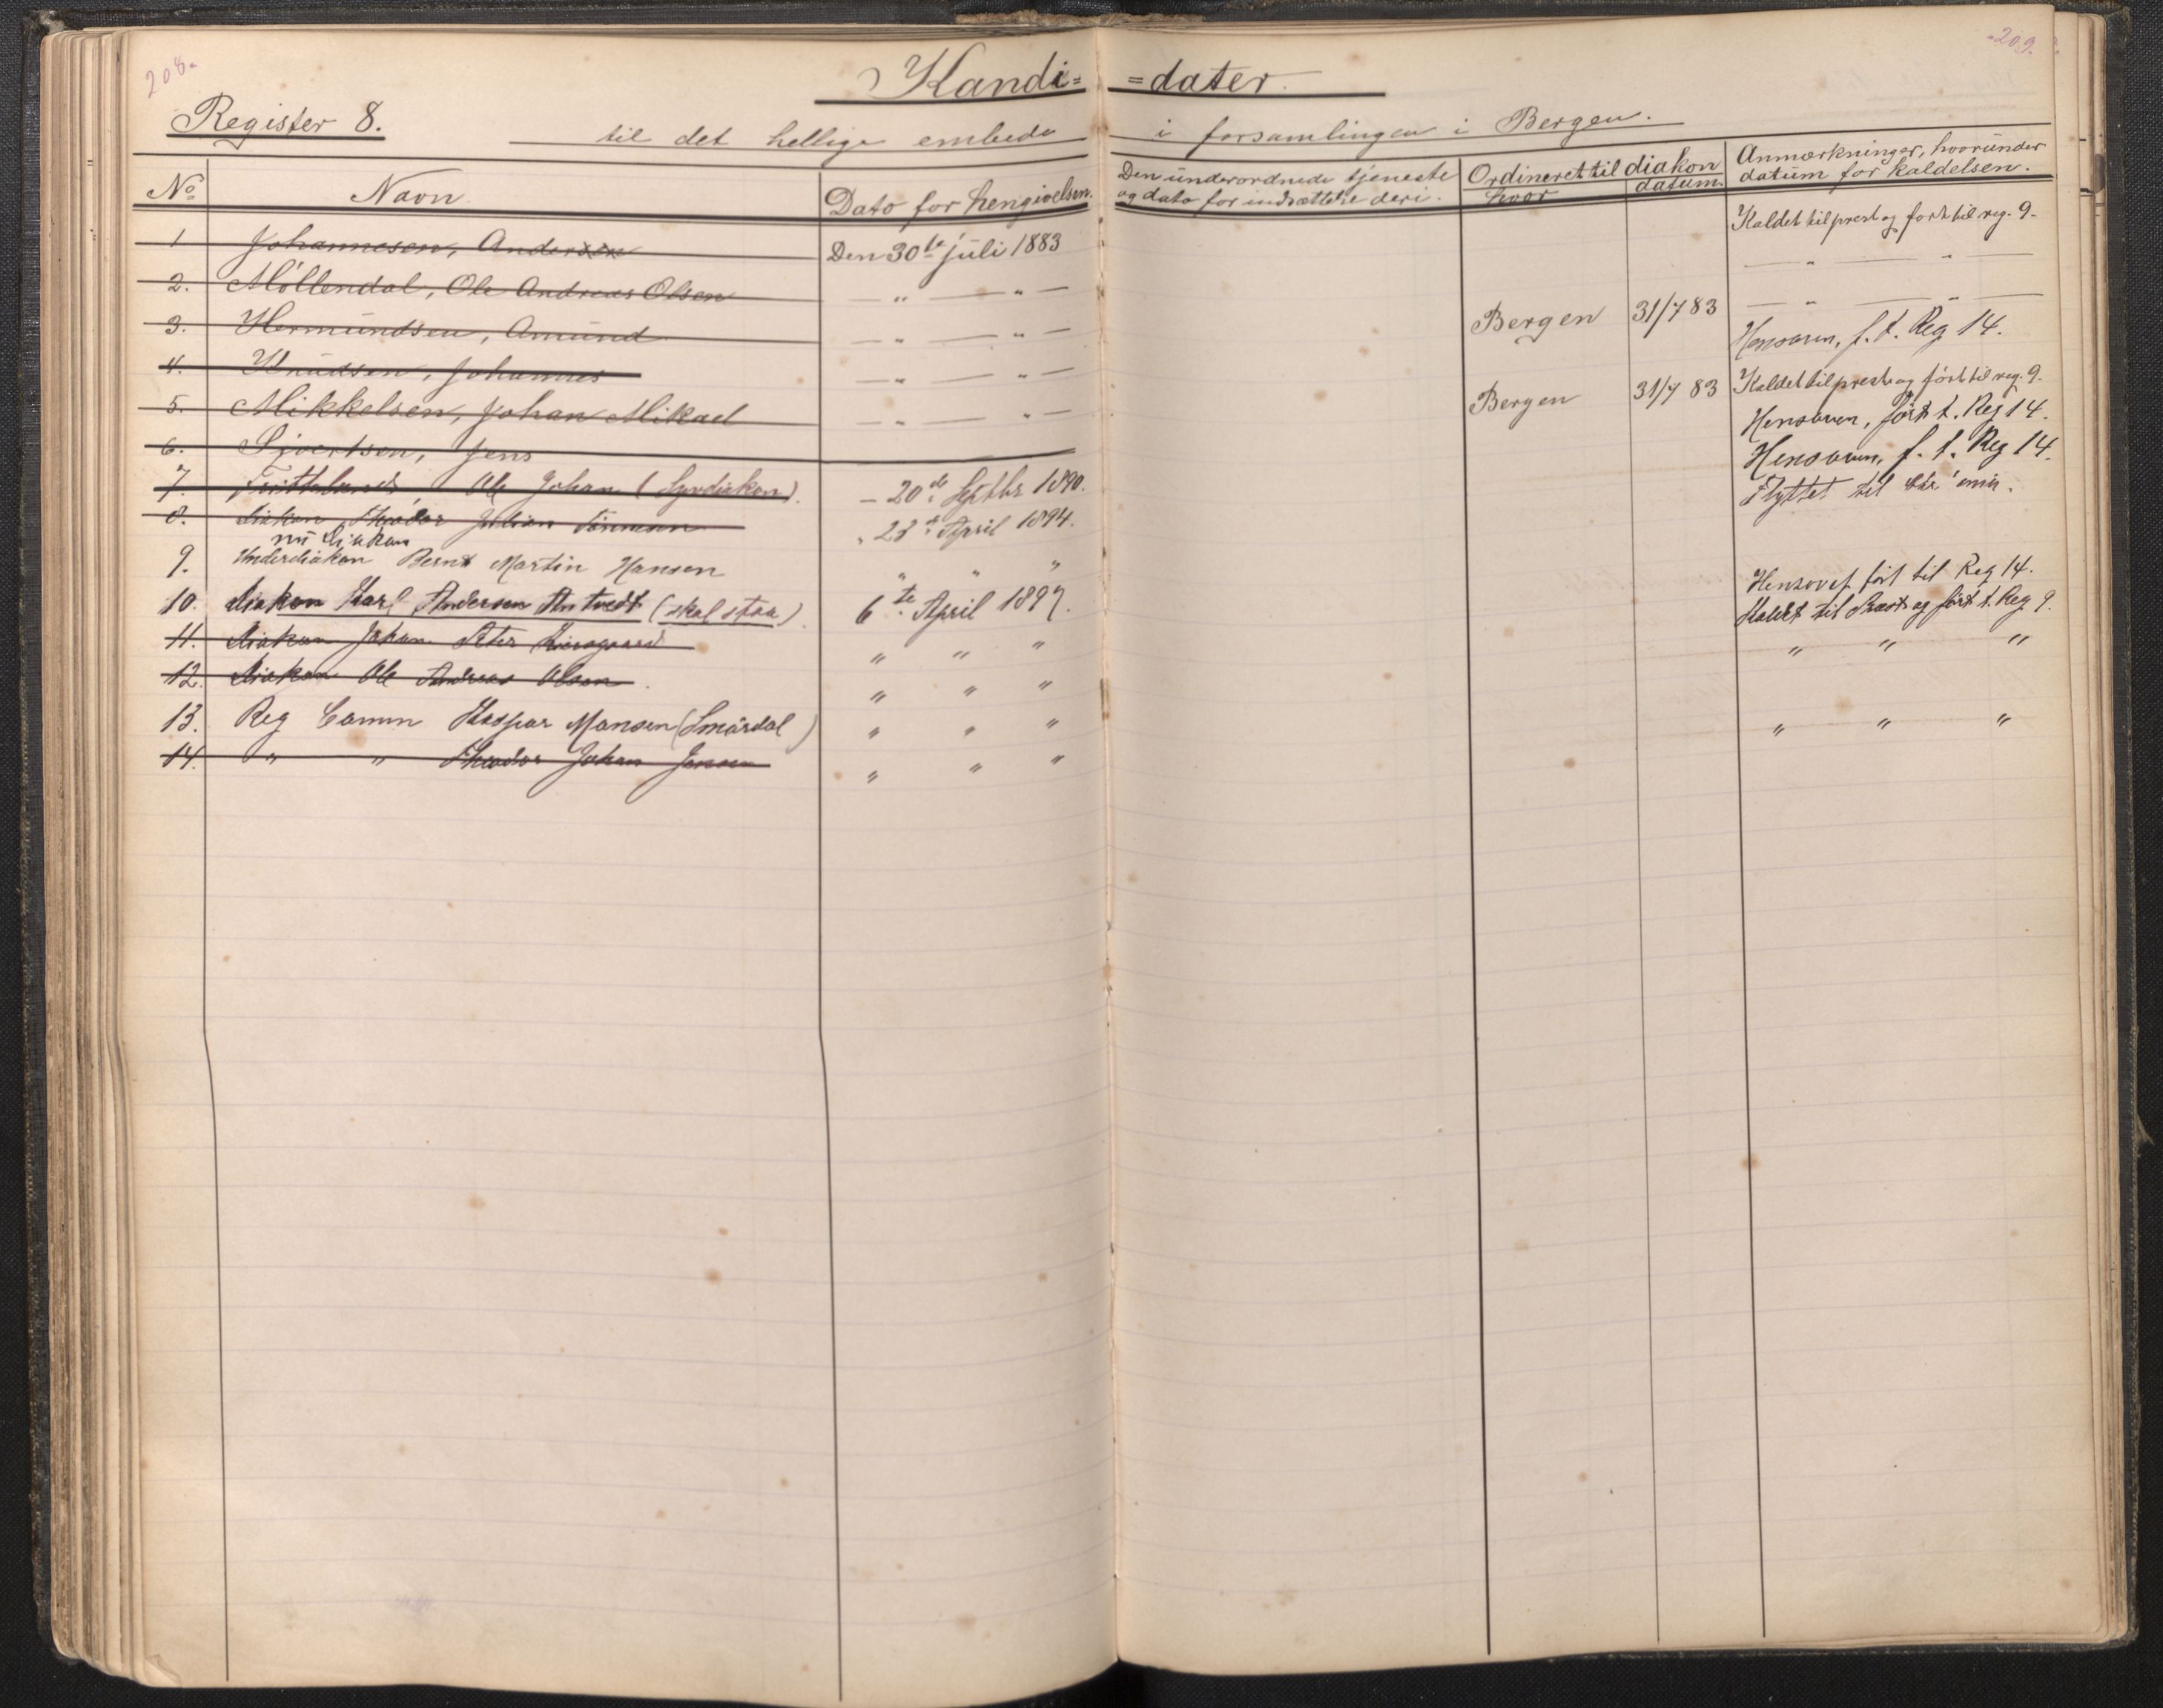 208.
209.
Kandi= =dater.
Register 8.
til det hellige embede i forsamlingen i Bergen.
No Navn Dato for hengivelsen. Den underordnede tjeneste og dato for indsættelse deri. Ordineret til diakon hvor datum. Anmærkninger, hvorunder datum for kaldelsen.
1 Johannesen, Andersen Den 30te juli 1883 Kaldet til prest og ført til reg. 9.
2. Möllendal, Ole Andreas Olsen — " — " — — " — " —
3. Hermundsen, Amund — " — " — Bergen 31/7 83 — " — " —
4. Knudsen, Johannes — " — " — Hensoven, f. t. Reg 14.
5. Mikkelsen, Johan Mikael — " — " — Bergen 31/7 83 Kaldet til prest og ført til reg. 9.
6. Sivertsen, Jens Hensoven, ført t. Reg 14.
7. Ole Johan ( — 20de Septbr 1890. Hensoven, f. t. Reg 14.
8. Diakon Theodor Julian " 23de April 1894. Flyttet til
nu Diakon
9. Underdiakon Bernt Martin Hansen " " "
10. Diakon Karl Andersen Antvedt (skal staa) 6te April 1897. Hensovet, ført til Reg 14.
11. Diakon Johan Peter " " " Kaldet til Præst og ført t. Reg 9.
12. Diakon Ole Andreas Olsen. " " " " " "
13. Reg Comm Kaspar Mansen (Smørdal) " " "
14. " " Theodor Johan Jensen " " " " " "